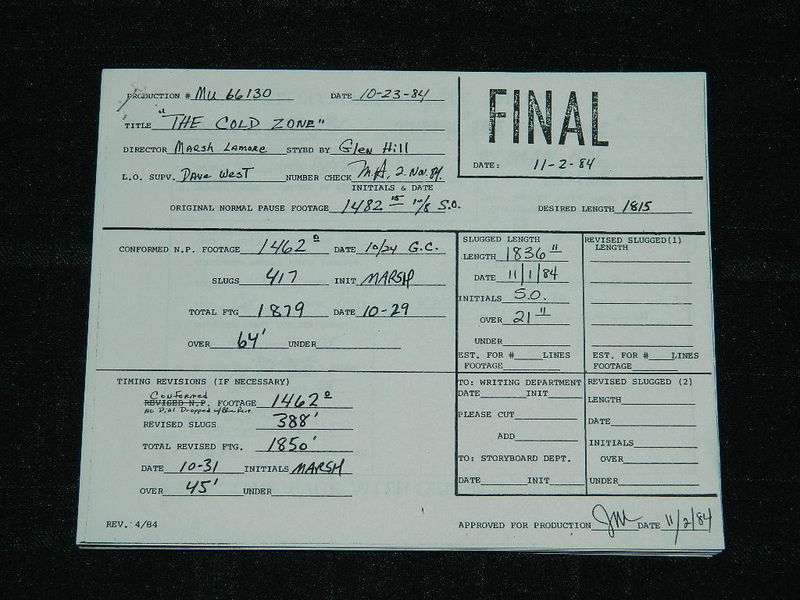 PRODUCTION # MU 66130 DATE 10-23-84
TITLE "THE COLD ZONE"
DIRECTOR MARSH LAMORE STYBD BY Glen Hill
L.O. SUPV. Dave West NUMBER CHECK M.A, 2. Nov. 84.
INITIALS & DATE
ORIGINAL NORMAL PAUSE FOOTAGE 1482 15 10/8 S.O.
FINAL
DATE: 11-2-84
DESIRED LENGTH 1815
CONFORMED N.P. FOOTAGE 1462 0 DATE 10/24 G.C.
SLUGS 417 INIT MARSH
TOTAL FTG 1879 DATE 10-29
OVER 64' UNDER
SLUGGED LENGTH
LENGTH 1836 11
DATE 11/1/84
INITIALS S.O.
OVER 21 11
UNDER
EST. FOR # LINES
FOOTAGE
REVISED SLUGGED(1)
LENGTH
EST. FOR # LINES
FOOTAGE
TIMING REVISIONS (IF NECESSARY)
Conformed
REVISED N.P. FOOTAGE 1462 0
No Dial Dropped w/
REVISED SLUGS 388'
TOTAL REVISED FTG. 1850'
DATE 10-31 INITIALS MARSH
OVER 45' UNDER
TO: WRITING DEPARTMENT
DATE INIT
PLEASE CUT
ADD
TO: STORYBOARD DEPT.
DATE INIT
REVISED SLUGGED (2)
LENGTH
DATE
INITIALS
OVER
UNDER
REV. 4/84
APPROVED FOR PRODUCTION DATE 11/2/84